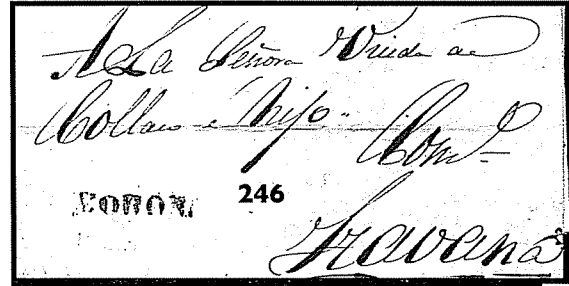 A La Señora Viuda de
Collazo é hijo..
Com.º
246
Havana